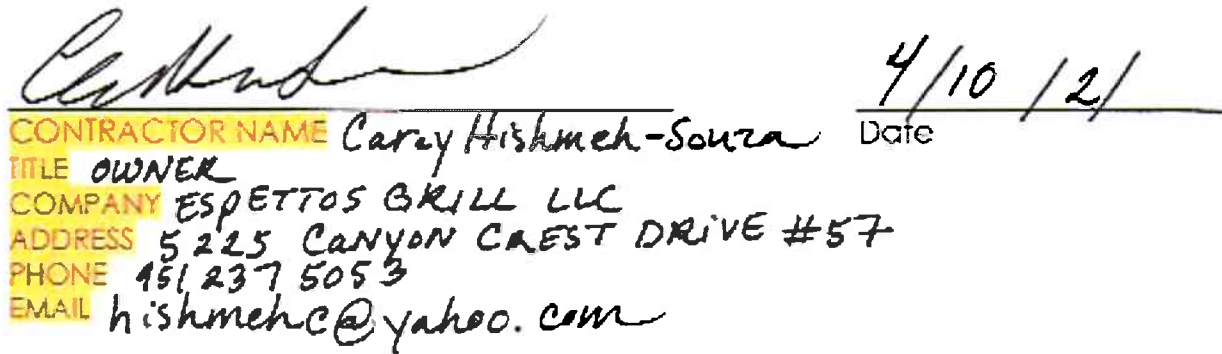 4/10/21
CONTRACTOR NAME Carey Hishmeh-Souza Date
TITLE OWNER
COMPANY ESPETTOS GRILL LLC
ADDRESS 5225 CANYON CREST DRIVE #57
PHONE 951 237 5053
EMAIL hishmehc@yahoo.com